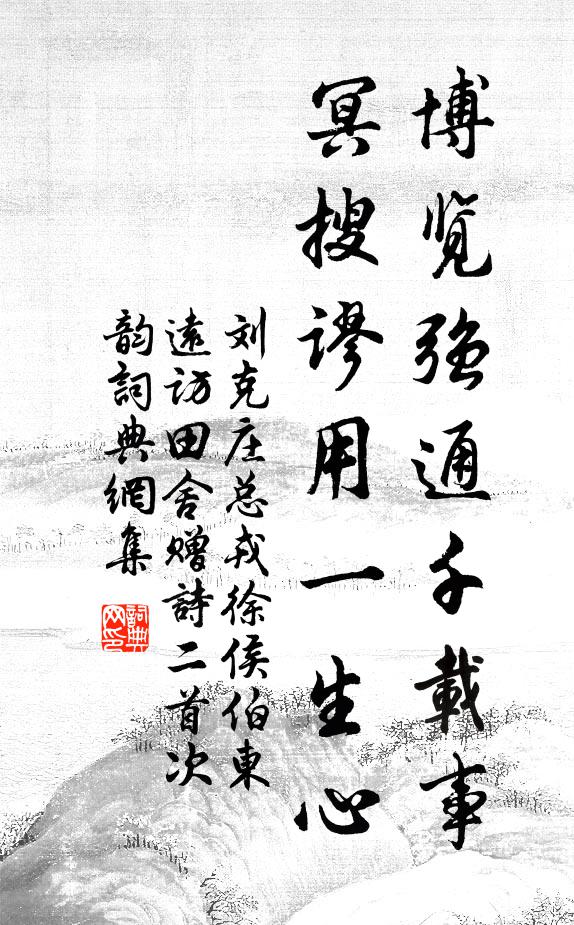 博览强通千載事
冥搜謬用一生心
刘克庄总戎徐侯伯東
遠访田舍赠詩二首次
韵詞典網集
詞典
网印